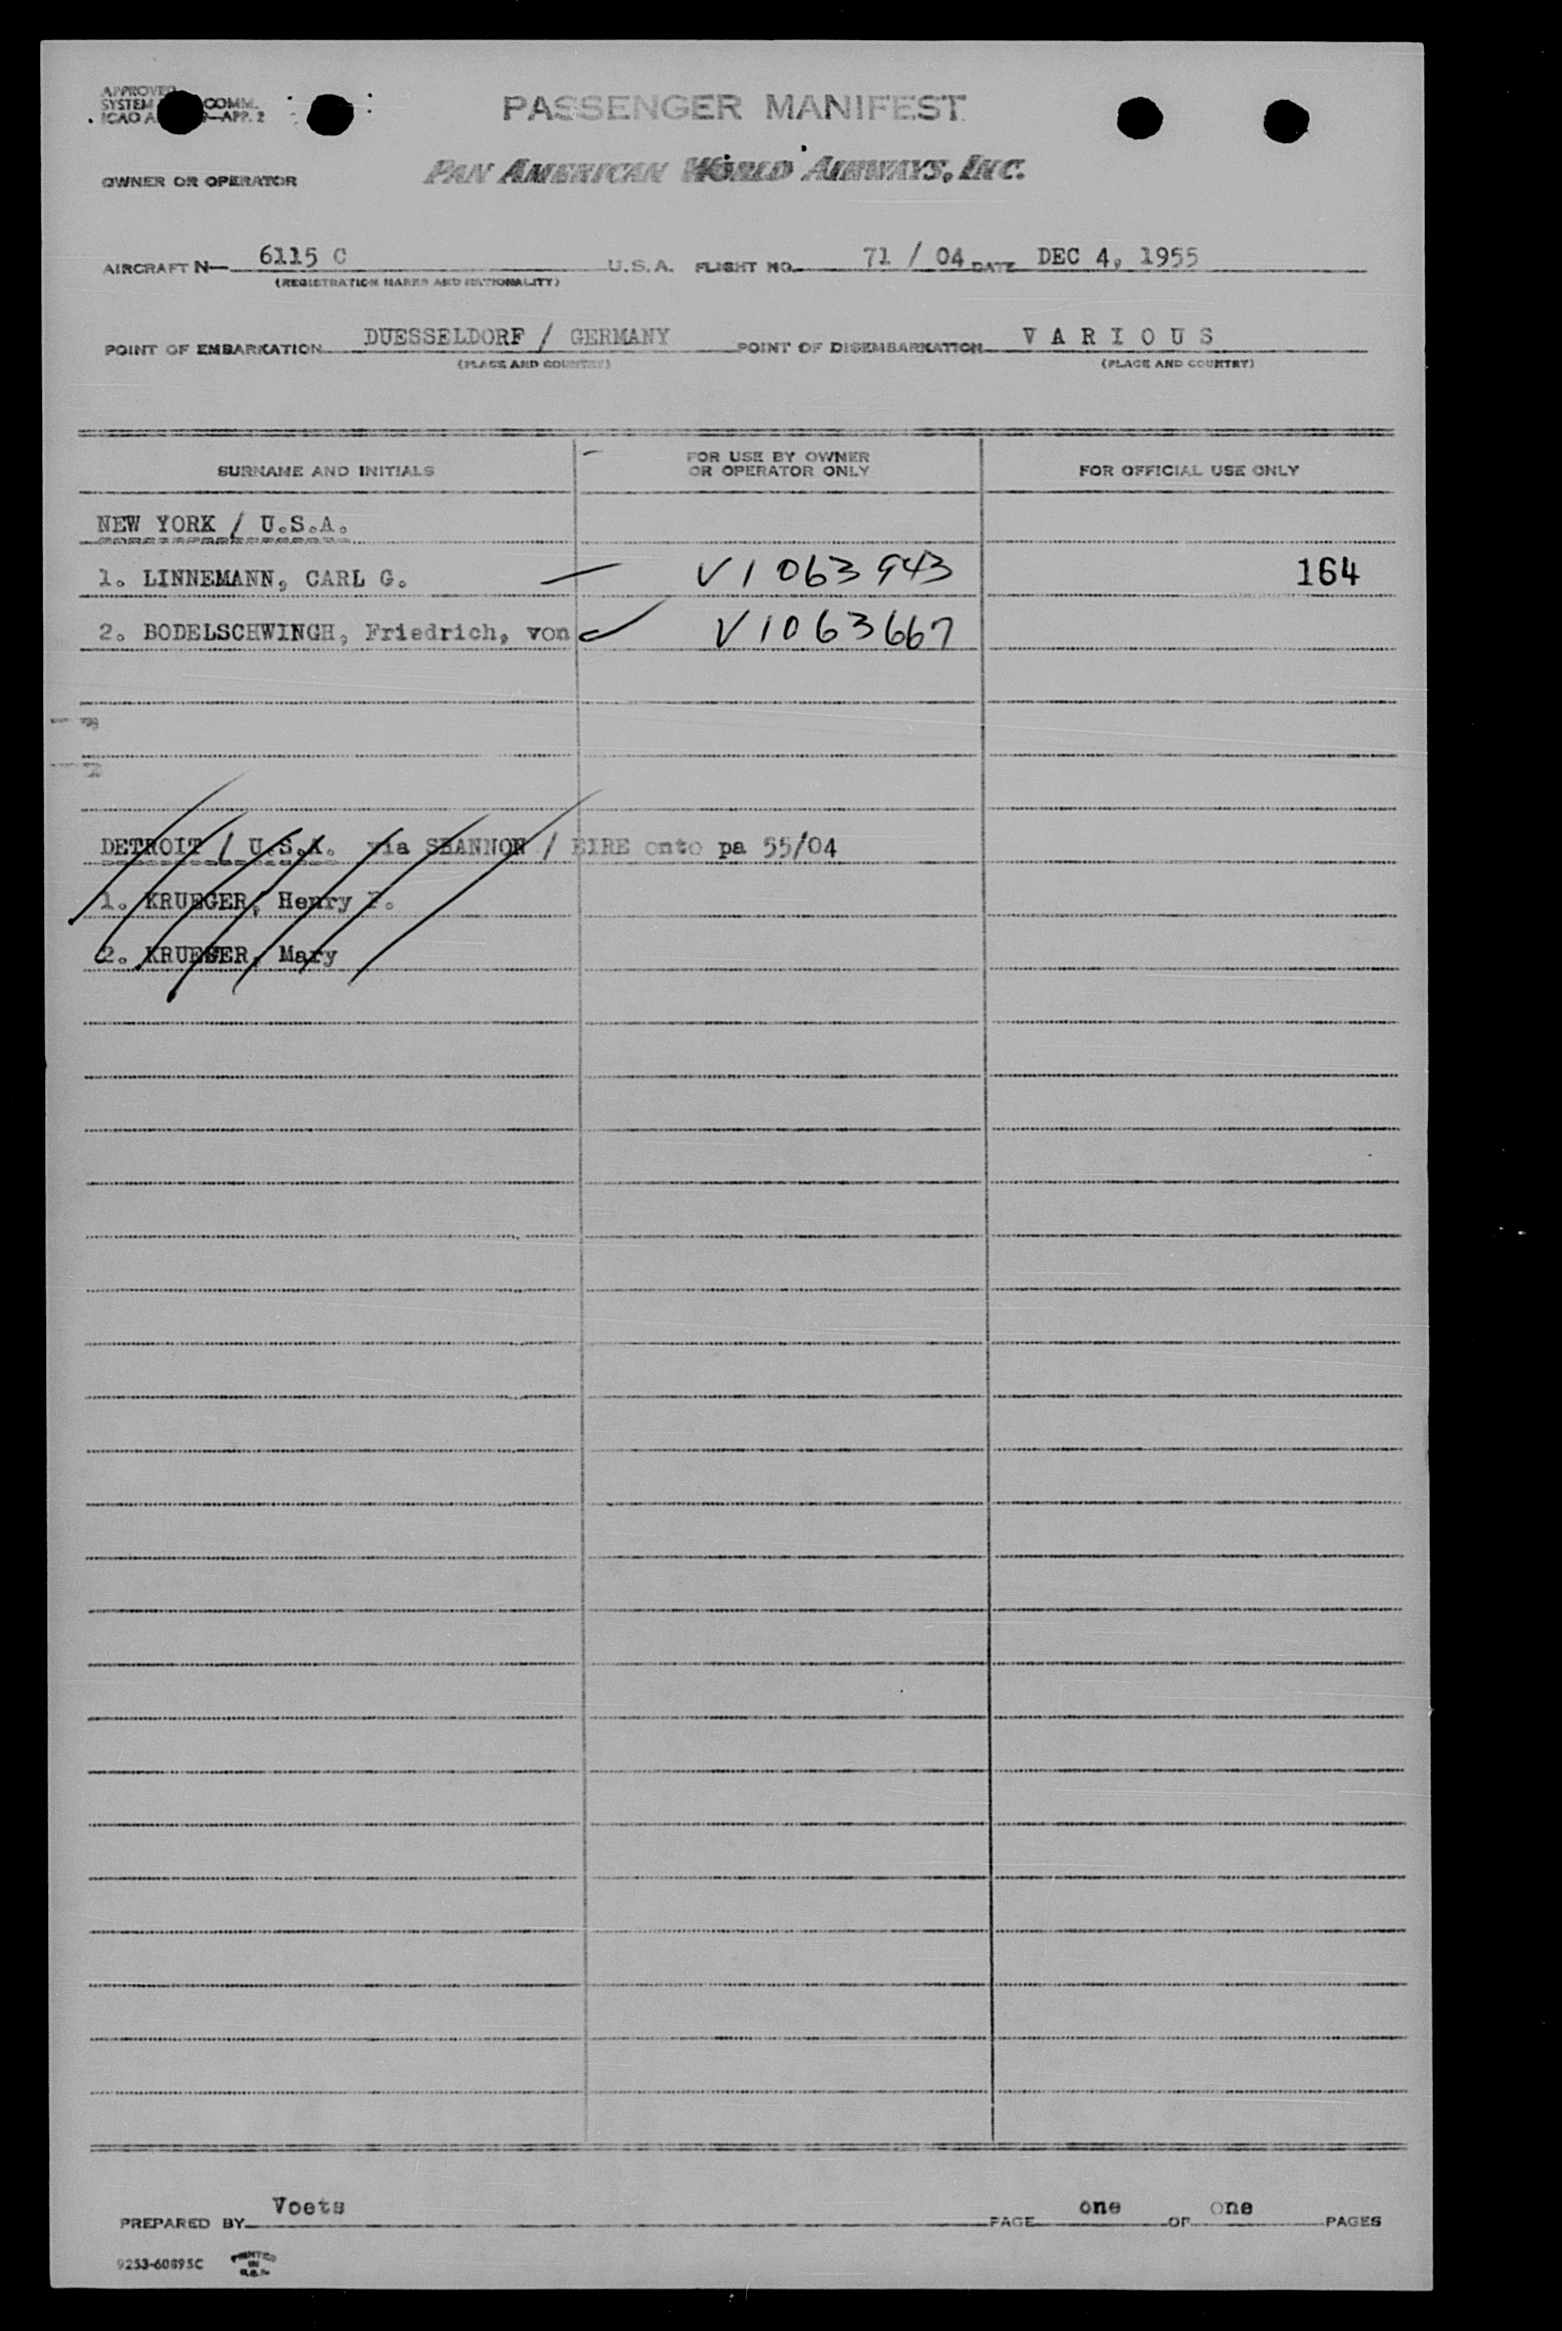 APPROVED
SYSTEM COMM.
ICAO A APP. 2
PASSENGER MANIFEST
OWNER OR OPERATOR PAN AMERICAN WORLD AIRWAYS, INC.
AIRCRAFT N— 6115 C U.S.A. FLIGHT NO. 71 / 04 DATE DEC 4, 1955
(REGISTRATION MARKS AND NATIONALITY)
POINT OF EMBARKATION DUESSELDORF / GERMANY POINT OF DISEMBARKATION V A R I O U S
(PLACE AND COUNTRY) (PLACE AND COUNTRY)
SURNAME AND INITIALS FOR USE BY OWNER OR OPERATOR ONLY FOR OFFICIAL USE ONLY
NEW YORK / U.S.A.
1. LINNEMANN, CARL G. V1063943 164
2. BODELSCHWINGH, Friedrich, von V1063667
DETROIT / U.S.A. via SHANNON / EIRE onto pa 55/04
1. KRUEGER, Henry
2. KRUEGER, Mary
PREPARED BY Voets PAGE one OF one PAGES
9253-60895C PRINTED IN U.S.A.